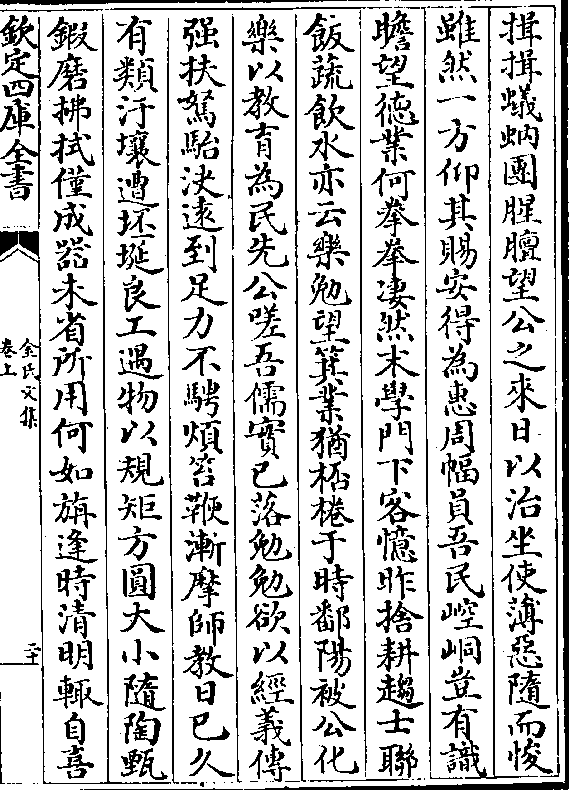 揖揖蟻蚋團腥膻望公之來日以治坐使薄惡隨而悛
雖然一方仰其賜安得為惠周幅員吾民崆峒豈有識
瞻望德業何拳拳凄然末學門下客憶昨捨耕趨士聯
飯蔬飲水亦云樂勉望箕業猶桮棬于時鄱陽被公化
樂以教育為民先公嗟吾儒實已落勉勉欲以經義傳
强扶駑駘決遠到足力不騁煩笞鞭漸摩師教日已久
有類汙壤遭坯埏良工遇物以規矩方圓大小隨陶甄
鍜磨拂拭僅成器未省所用何如旃逢時清明輙自喜
欽定四庫全書
金氏文集
卷上
二十